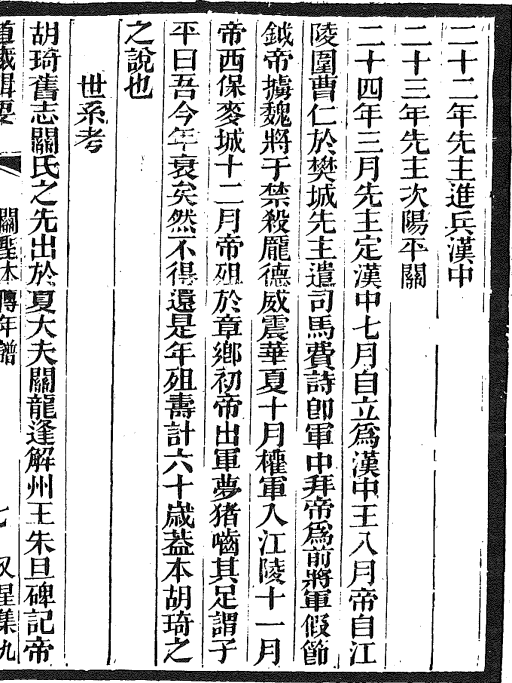 二十二年先主進兵漢中
二十三年先主次陽平關
二十四年三月先主定漢中七月自立爲漢中王八月帝自江
陵圍曹仁於樊城先主遣司馬費詩卽軍中拜帝爲前將軍假節
鉞帝擄魏將于禁殺龐德威震華夏十月權軍入江陵十一月
帝西保麥城十二月帝殂於章鄉初帝出軍夢猪嚙其足謂子
平曰吾今年衰矣然不得還是年殂壽計六十歲葢本胡琦之
之說也
世系考
胡琦舊志關氏之先出於夏大夫關龍逢解州王朱旦碑記帝
道藏輯要 關聖本傳年譜 七 集九